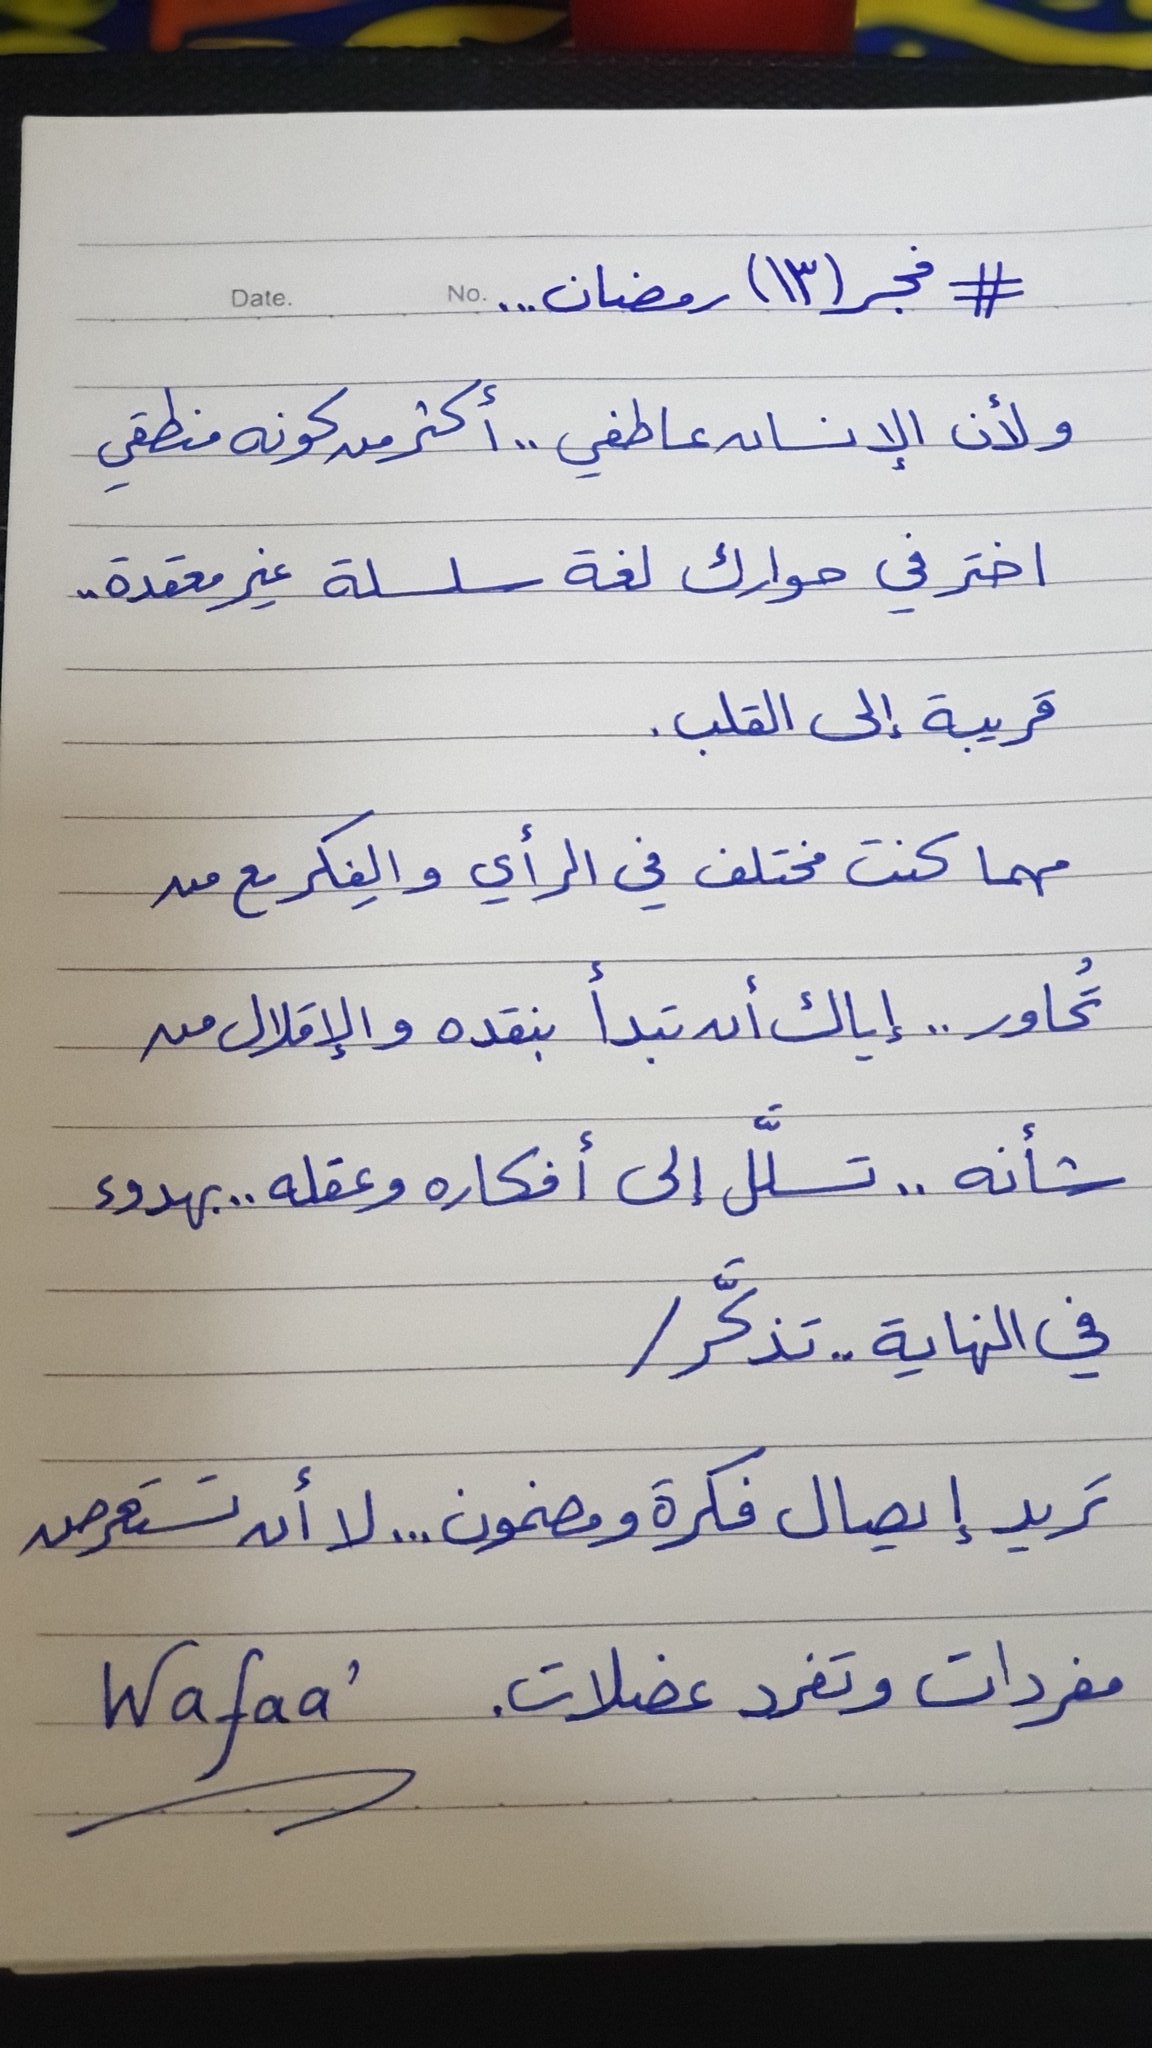 # فجر (١٣) رمضان...
Date. No.
ولأن الإنسان عاطفي .. أكثر من كونه منطقي
اختر في حوارك لغة سلسلة غير معقدة..
قريبة إلى القلب.
مهما كنت مختلف في الرأي والفِكر مع من
تُحاور .. إياك أن تبدأ بنقده والإقلال من
شأنه .. تسلَّل إلى أفكاره وعقله .. بهدوء
في النهاية .. تذكَّر /
تريد إيصال فكرة ومضمون... لا أن تستعرض
مفردات وتفرد عضلات.
Wafaa'